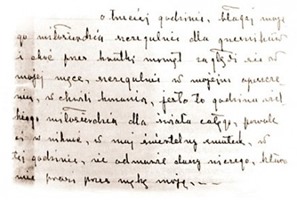 o trzeciej godzinie. błagaj moje
go miłosierdzia szczegulnie dla grzeszników
i choć przez krutki momęt zagłębi się w
mojej męce, szczegulnie w mojem opuszcze
niu, w chwili konania, jest to godzina wiel
kiego miłosierdzia dla świata całego, pozwolę
ci wniknąć, w mój śmiertelny smutek, w
tej godzinie, nie odmówię duszy niczego, która
mnie prosi przez mękę moję, —